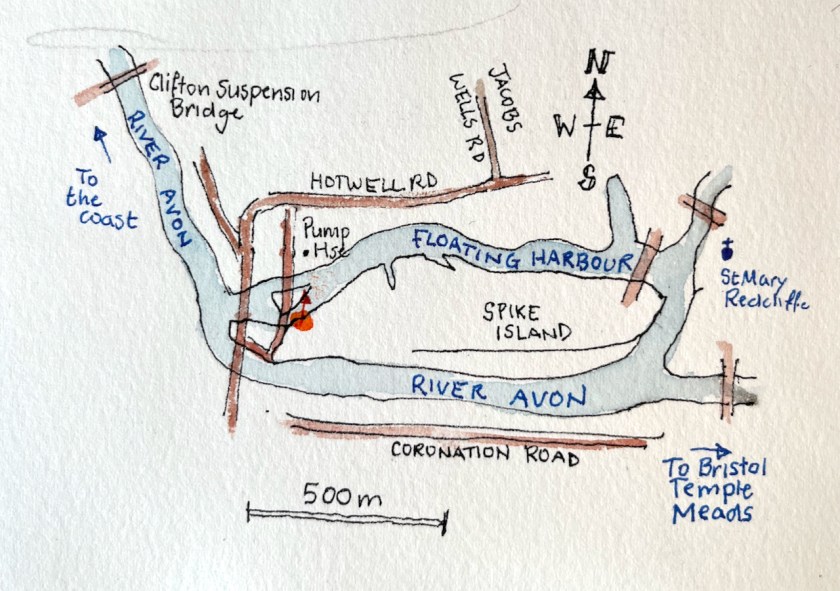 Clifton Suspension
Bridge
RIVER AVON
To
the
coast
JACOBS
WELLS RD
N
W E
S
HOTWELL RD
Pump
Hse
FLOATING HARBOUR
St Mary
Redcliffe
SPIKE
ISLAND
RIVER AVON
CORONATION ROAD
To Bristol
Temple
Meads
500m